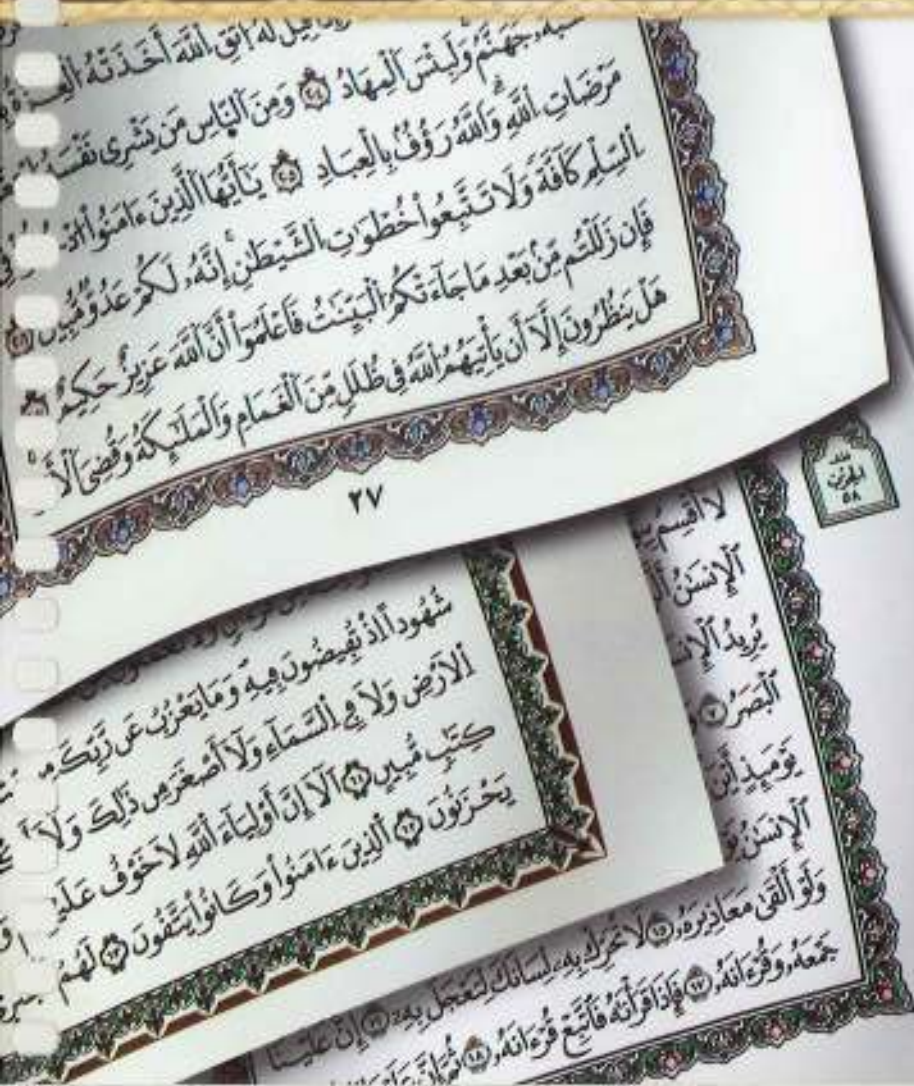 قِيلَ لَهُ اتَّقِ اللَّهَ أَخَذَتْهُ
جَهَنَّمُ وَلَبِئْسَ الْمِهَادُ ٢٠٤ وَمِنَ النَّاسِ مَن يَشْرِى نَفْسَهُ
مَرْضَاتِ اللَّهِ وَاللَّهُ رَؤُفٌ بِالْعِبَادِ ٢٠٥ يَـٰٓأَيُّهَا الَّذِينَ ءَامَنُوا
السِّلْمِ كَآفَّةً وَلَا تَتَّبِعُوا خُطُوَٰتِ الشَّيْطَـٰنِ إِنَّهُۥ لَكُمْ عَدُوٌّ مُّبِينٌ
فَإِن زَلَلْتُم مِّنۢ بَعْدِ مَا جَآءَتْكُمُ الْبَيِّنَـٰتُ فَاعْلَمُوٓا أَنَّ اللَّهَ عَزِيزٌ حَكِيمٌ
هَلْ يَنظُرُونَ إِلَّآ أَن يَأْتِيَهُمُ اللَّهُ فِى ظُلَلٍ مِّنَ الْغَمَامِ وَالْمَلَـٰٓئِكَةُ وَقُضِىَ الْأَ
٢٧
شُهُودًا إِذْ تُفِيضُونَ فِيهِ وَمَا يَعْزُبُ عَن رَّبِّكَ
الْأَرْضِ وَلَا فِى السَّمَآءِ وَلَآ أَصْغَرَ مِن ذَٰلِكَ وَلَآ
كِتَـٰبٍ مُّبِينٍ ٦١ أَلَآ إِنَّ أَوْلِيَآءَ اللَّهِ لَا خَوْفٌ
يَحْزَنُونَ ٦٢ الَّذِينَ ءَامَنُوا وَكَانُوا يَتَّقُونَ ٦٣ لَهُمُ
الحزب
٥٨
لَآ أُقْسِمُ
الْإِنسَـٰنُ
يُرِيدُ
الْبَصَرُ ٧
يَوْمَئِذٍ أَيْنَ
الْإِنسَـٰنُ
وَلَوْ أَلْقَىٰ مَعَاذِيرَهُۥ ١٥ لَا تُحَرِّكْ بِهِۦ لِسَانَكَ لِتَعْجَلَ بِهِۦٓ ١٦ إِنَّ عَلَيْنَا
جَمْعَهُۥ وَقُرْءَانَهُۥ ١٧ فَإِذَا قَرَأْنَـٰهُ فَاتَّبِعْ قُرْءَانَهُۥ ١٨ ثُمَّ إِنَّ